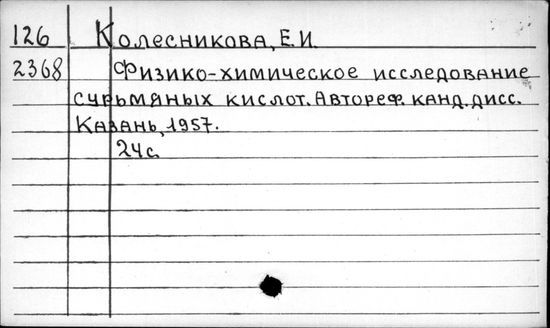 126 Колесникова, Е.И.
2368 Физико-химическое исследование
сурьмяных кислот. Автореф. канд. дисс.
Казань, 1957.
24с.